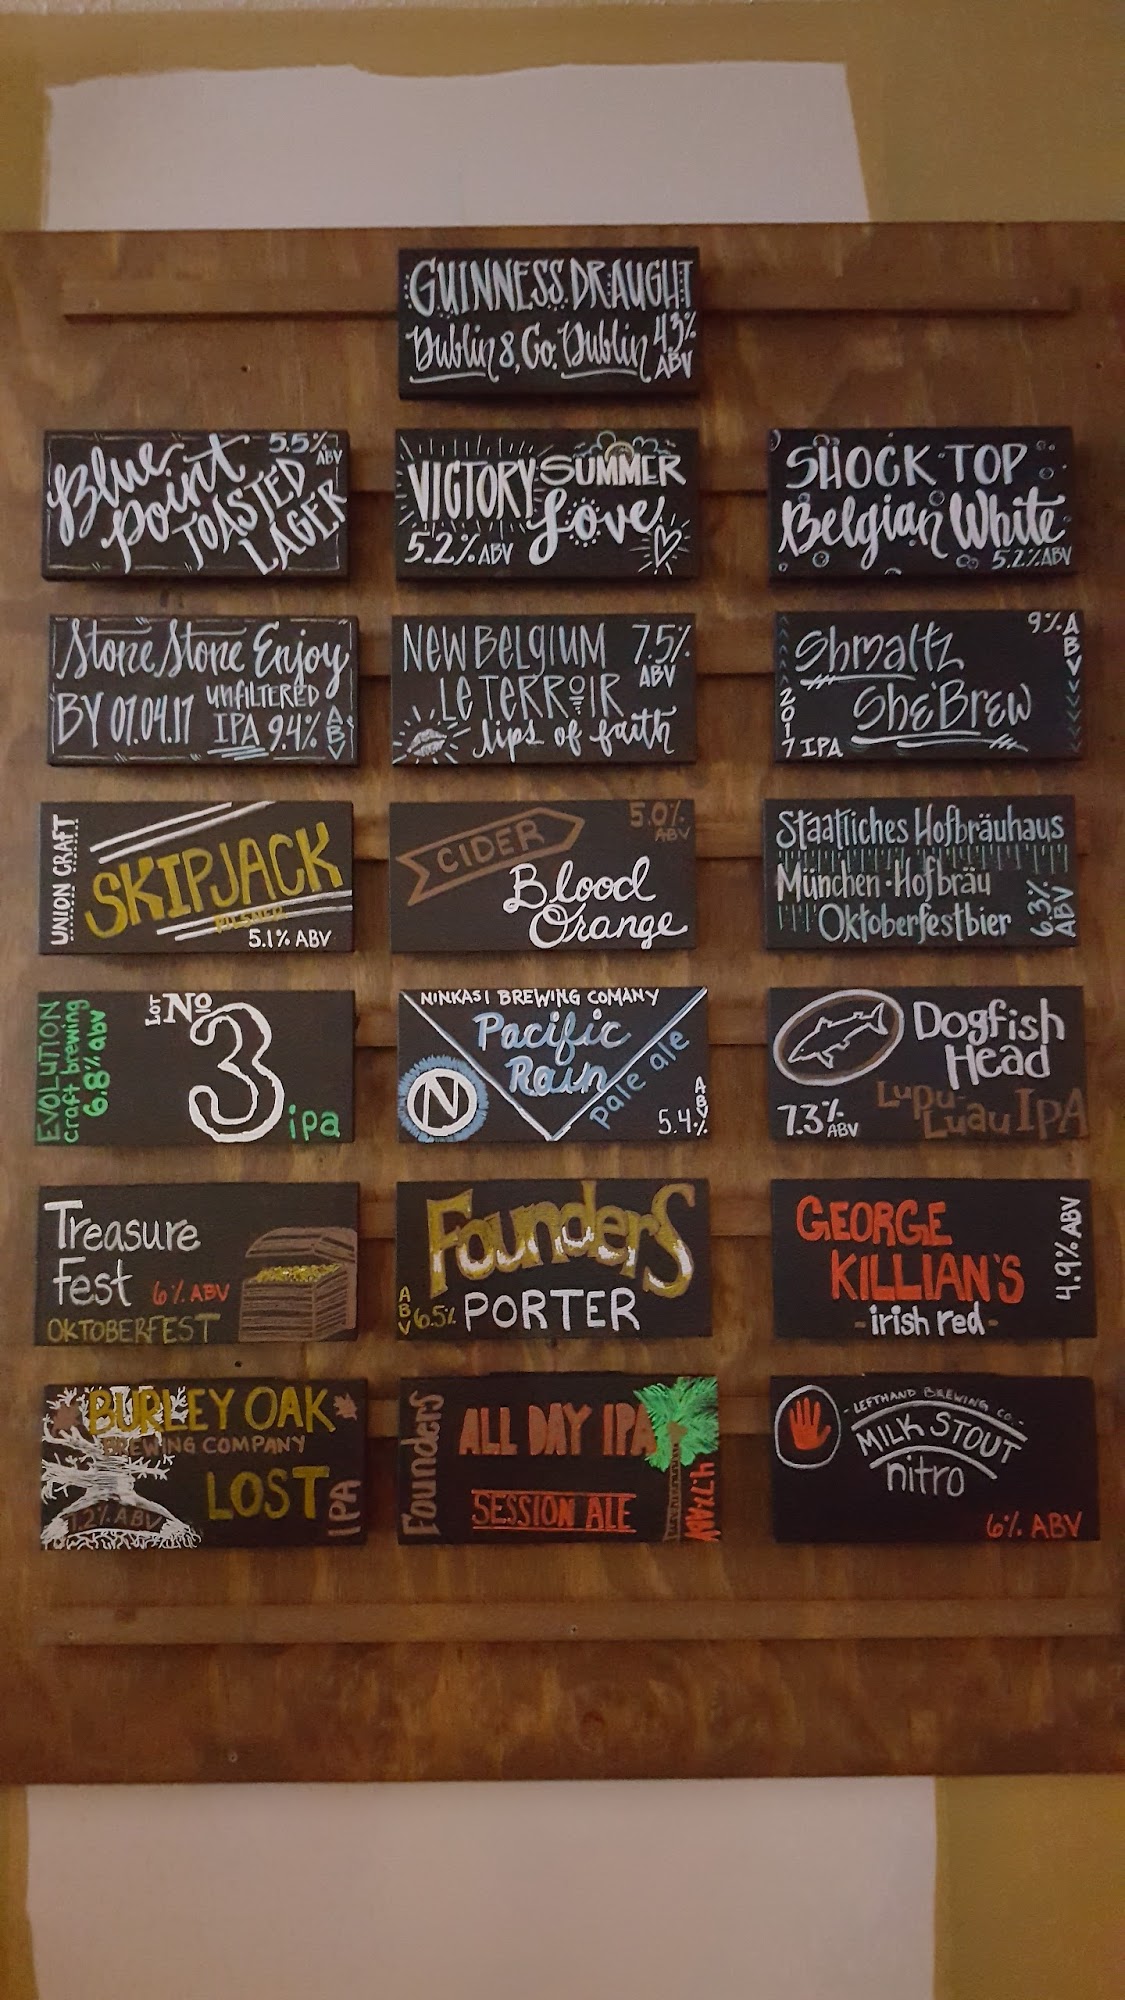 GUINNESS DRAUGHT
Dublin 8, Co. Dublin 4.3% ABV
Blue Point TOASTED LAGER
5.5% ABV
VICTORY SUMMER
Love
5.2% ABV
SHOCK TOP
Belgian White
5.2% ABV
Stone Stone Enjoy
BY 07.04.17 unfiltered
IPA 9.4% ABV
NEW BELGIUM 7.5%
LE TERROIR ABV
lips of faith
Shmaltz 9% ABV
She'Brew
2017 IPA
UNION CRAFT
SKIPJACK
PILSNER
5.1% ABV
CIDER
5.0% ABV
Blood
Orange
Staatliches Hofbräuhaus
München · Hofbräu
Oktoberfestbier
6.3% ABV
EVOLUTION
craft brewing
6.8% abv
LOT No 3
ipa
NINKASI BREWING COMANY
Pacific
Rain
Pale ale
N
ABV
5.4%
Dogfish
Head
Lupu-
Luau IPA
7.3% ABV
Treasure
Fest 6% ABV
OKTOBERFEST
Founders
ABV 6.5% PORTER
GEORGE
KILLIAN'S
-irish red-
4.9% ABV
BURLEY OAK
BREWING COMPANY
LOST
IPA
7.2% ABV
Founders
ALL DAY IPA
SESSION ALE
4.7% ABV
- LEFTHAND BREWING CO. -
MILK STOUT
nitro
6% ABV